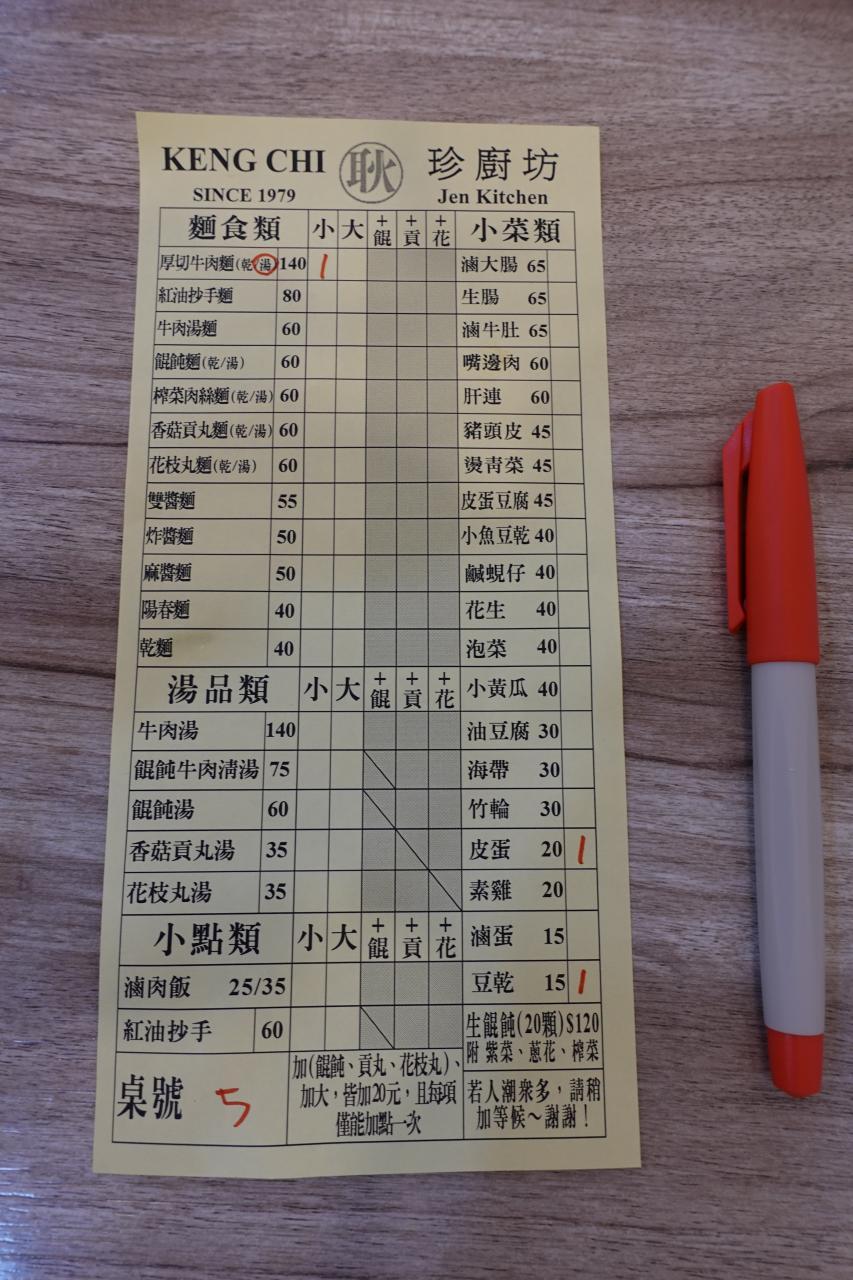 KENG CHI 耿 珍廚坊
SINCE 1979 Jen Kitchen
麵食類 小 大 +餛 +貢 +花
厚切牛肉麵(乾/湯) 140 1
紅油抄手麵 80
牛肉湯麵 60
餛飩麵(乾/湯) 60
榨菜肉絲麵(乾/湯) 60
香菇貢丸麵(乾/湯) 60
花枝丸麵(乾/湯) 60
雙醬麵 55
炸醬麵 50
麻醬麵 50
陽春麵 40
乾麵 40
湯品類 小 大 +餛 +貢 +花
牛肉湯 140
餛飩牛肉清湯 75
餛飩湯 60
香菇貢丸湯 35
花枝丸湯 35
小點類 小 大 +餛 +貢 +花
滷肉飯 25/35
紅油抄手 60
桌號 5
加(餛飩、貢丸、花枝丸)、
加大，皆加20元，且每項
僅能加點一次
小菜類
滷大腸 65
生腸 65
滷牛肚 65
嘴邊肉 60
肝連 60
豬頭皮 45
燙青菜 45
皮蛋豆腐 45
小魚豆乾 40
鹹蜆仔 40
花生 40
泡菜 40
小黃瓜 40
油豆腐 30
海帶 30
竹輪 30
皮蛋 20 1
素雞 20
滷蛋 15
豆乾 15 1
生餛飩(20顆)$120
附 紫菜、蔥花、榨菜
若人潮眾多，請稍
加等候～謝謝！